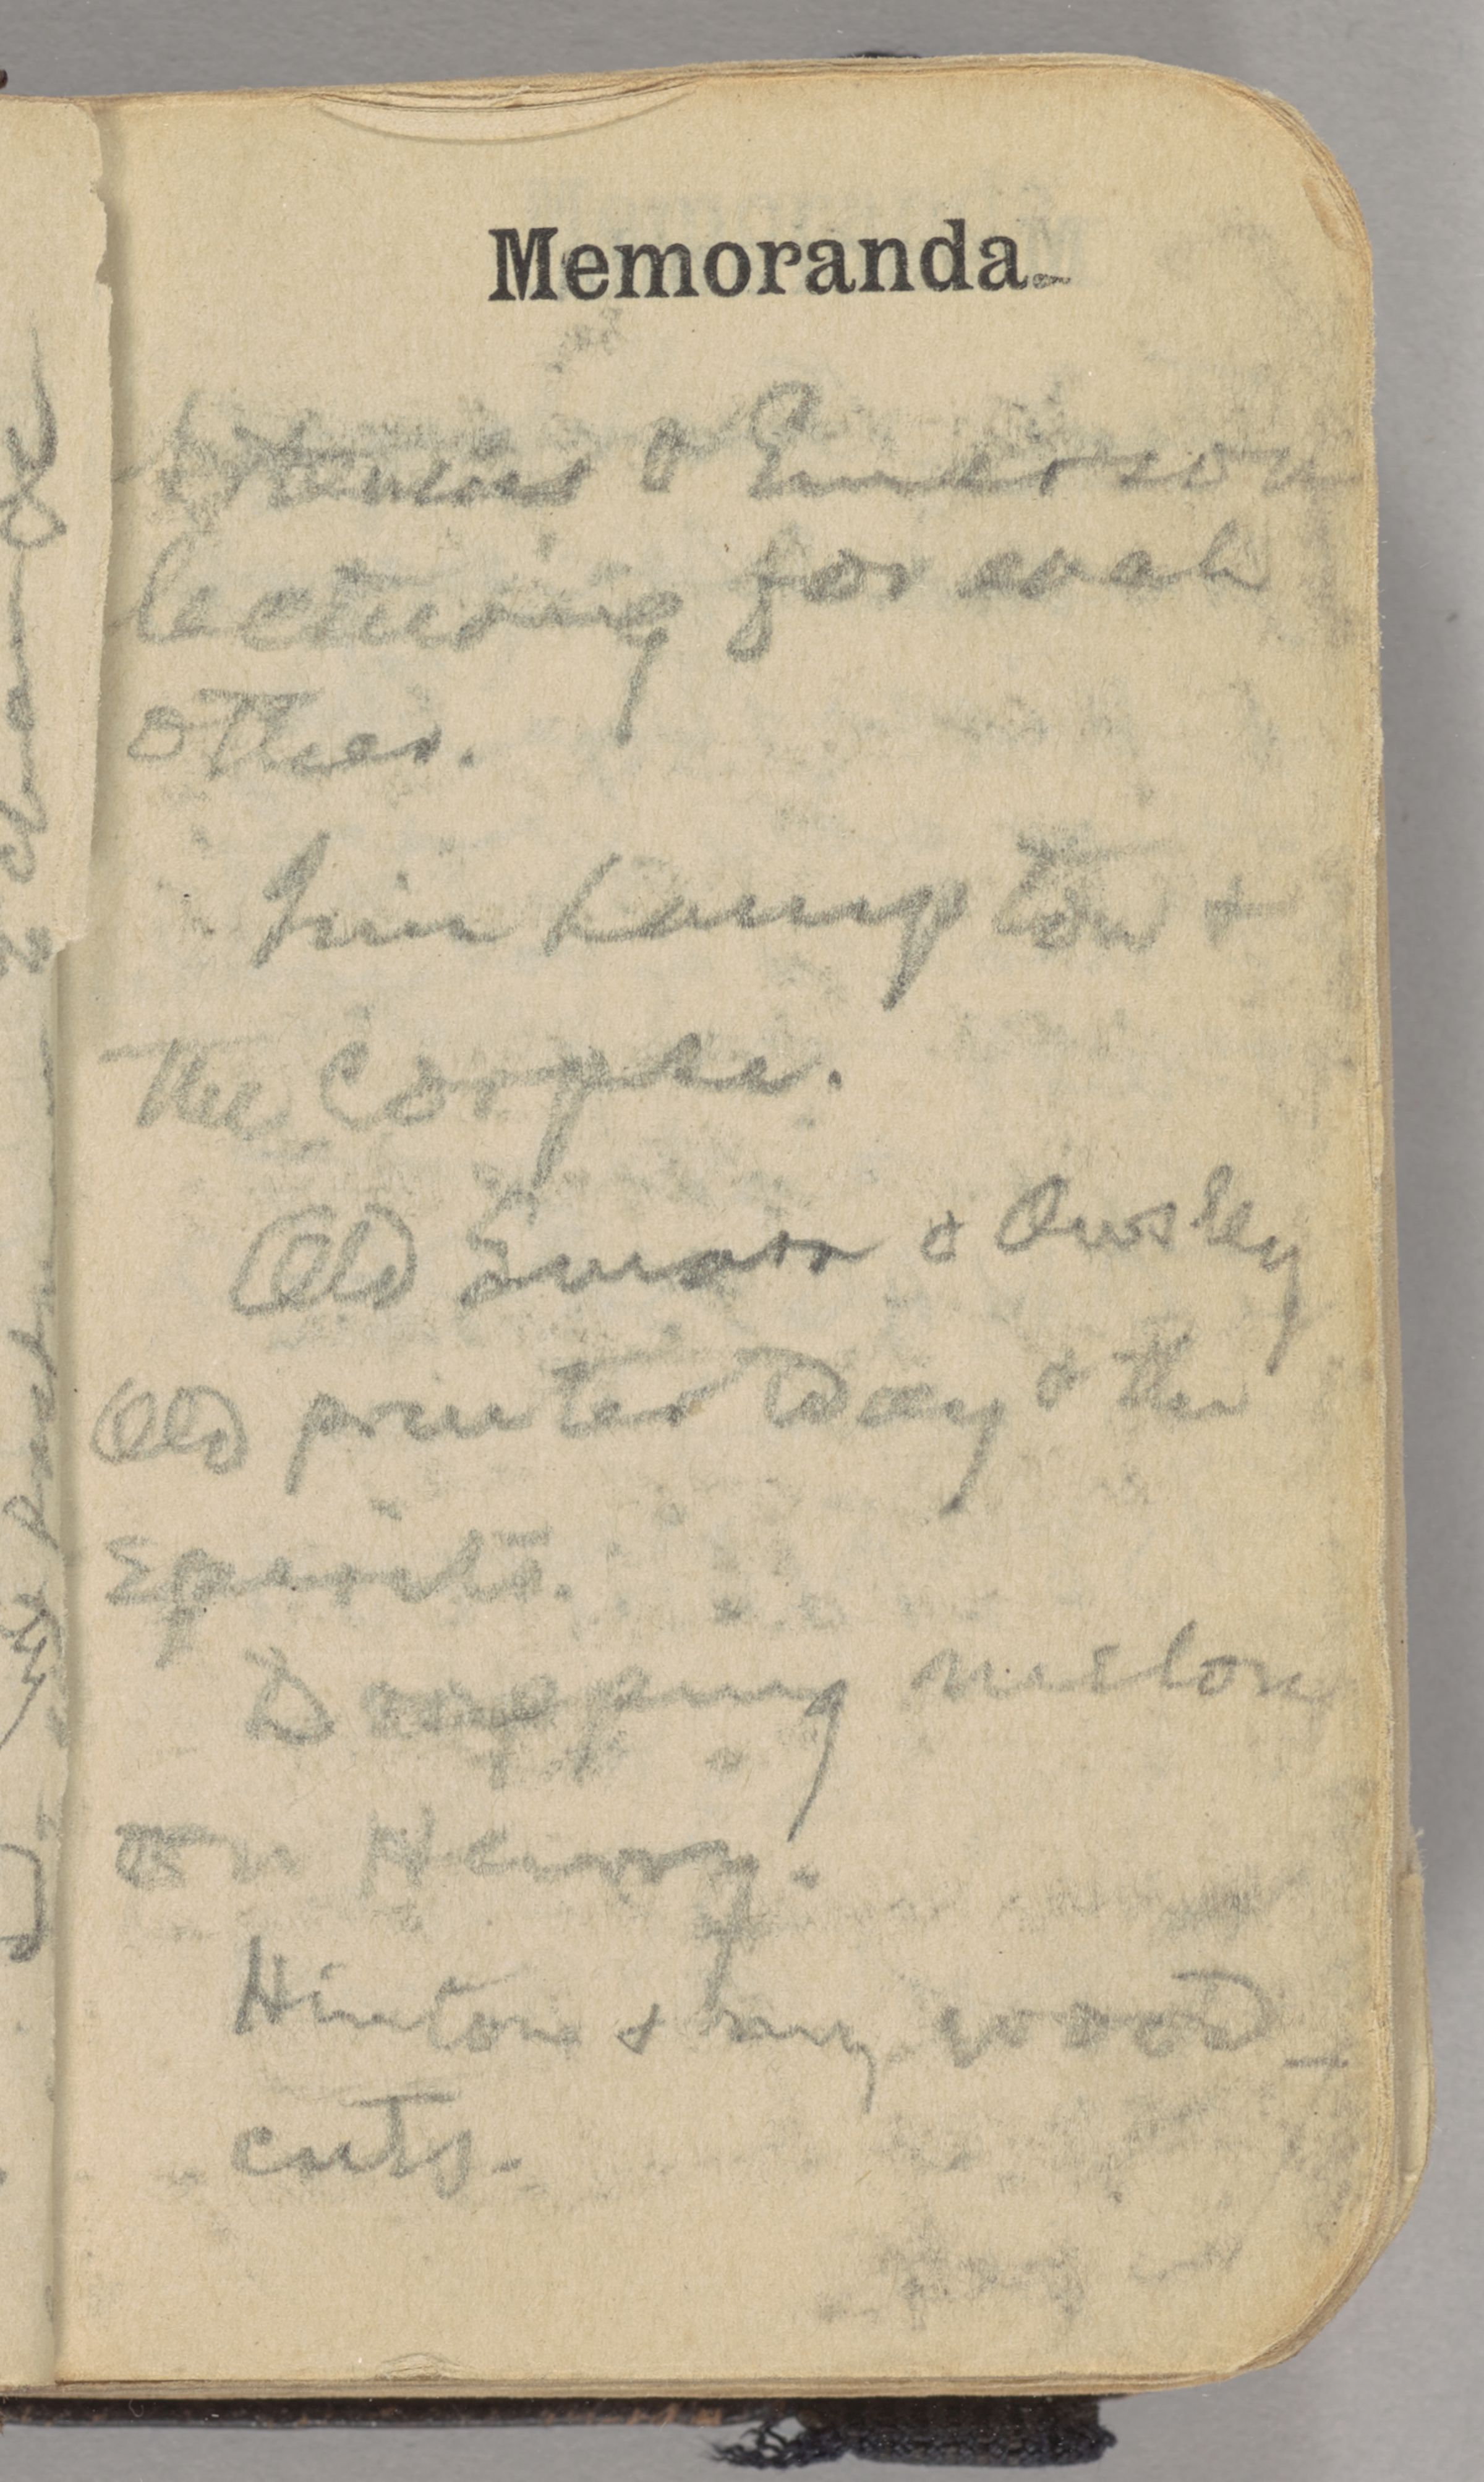 Memoranda.
Artemus & Emerson
lecturing for each
other.
Jim Lampton &
the corpse.
Old Smarr & Owsley
Old printer Day & the
spirits.
Dropping melon
on Henry.
Hinton & my wood-
cuts.